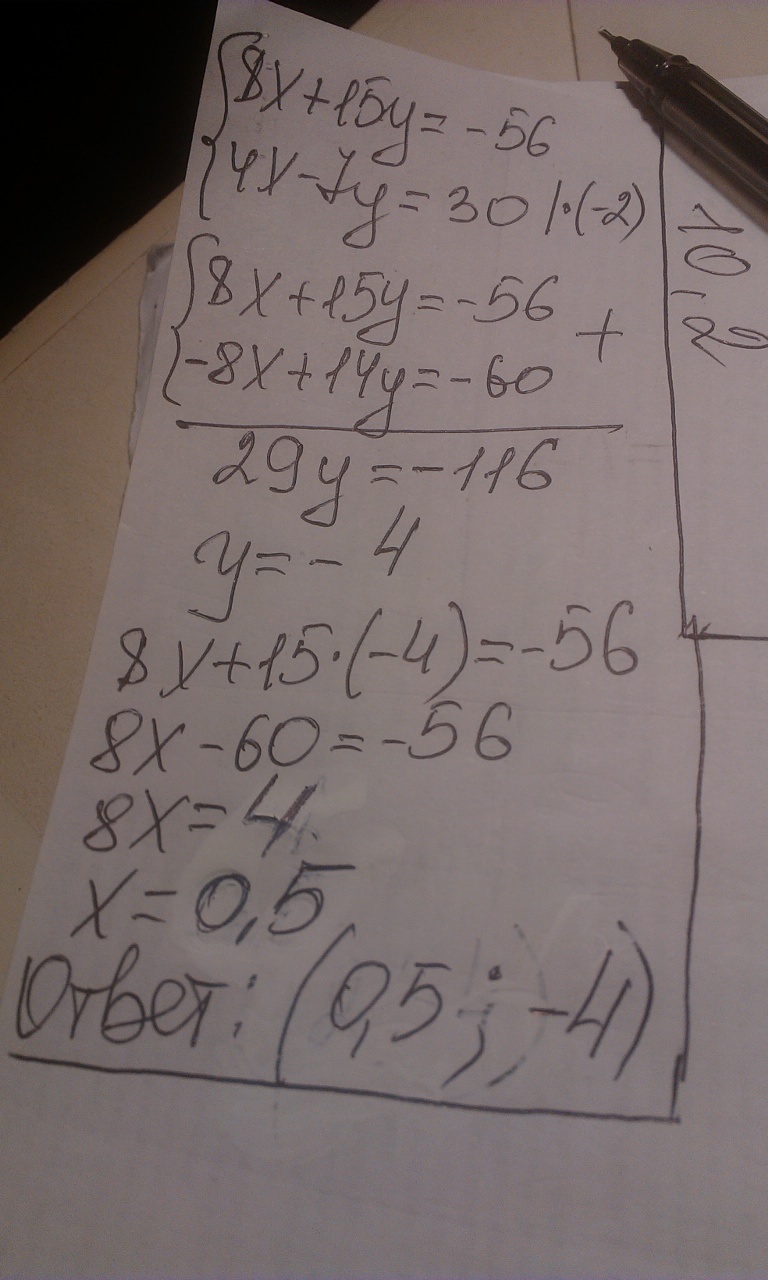 8x+15y=-56
4x-7y=30 |·(-2)
8x+15y=-56
-8x+14y=-60
+
29y=-116
y=-4
8x+15·(-4)=-56
8x-60=-56
8x=4
x=0,5
Ответ: (0,5; -4)